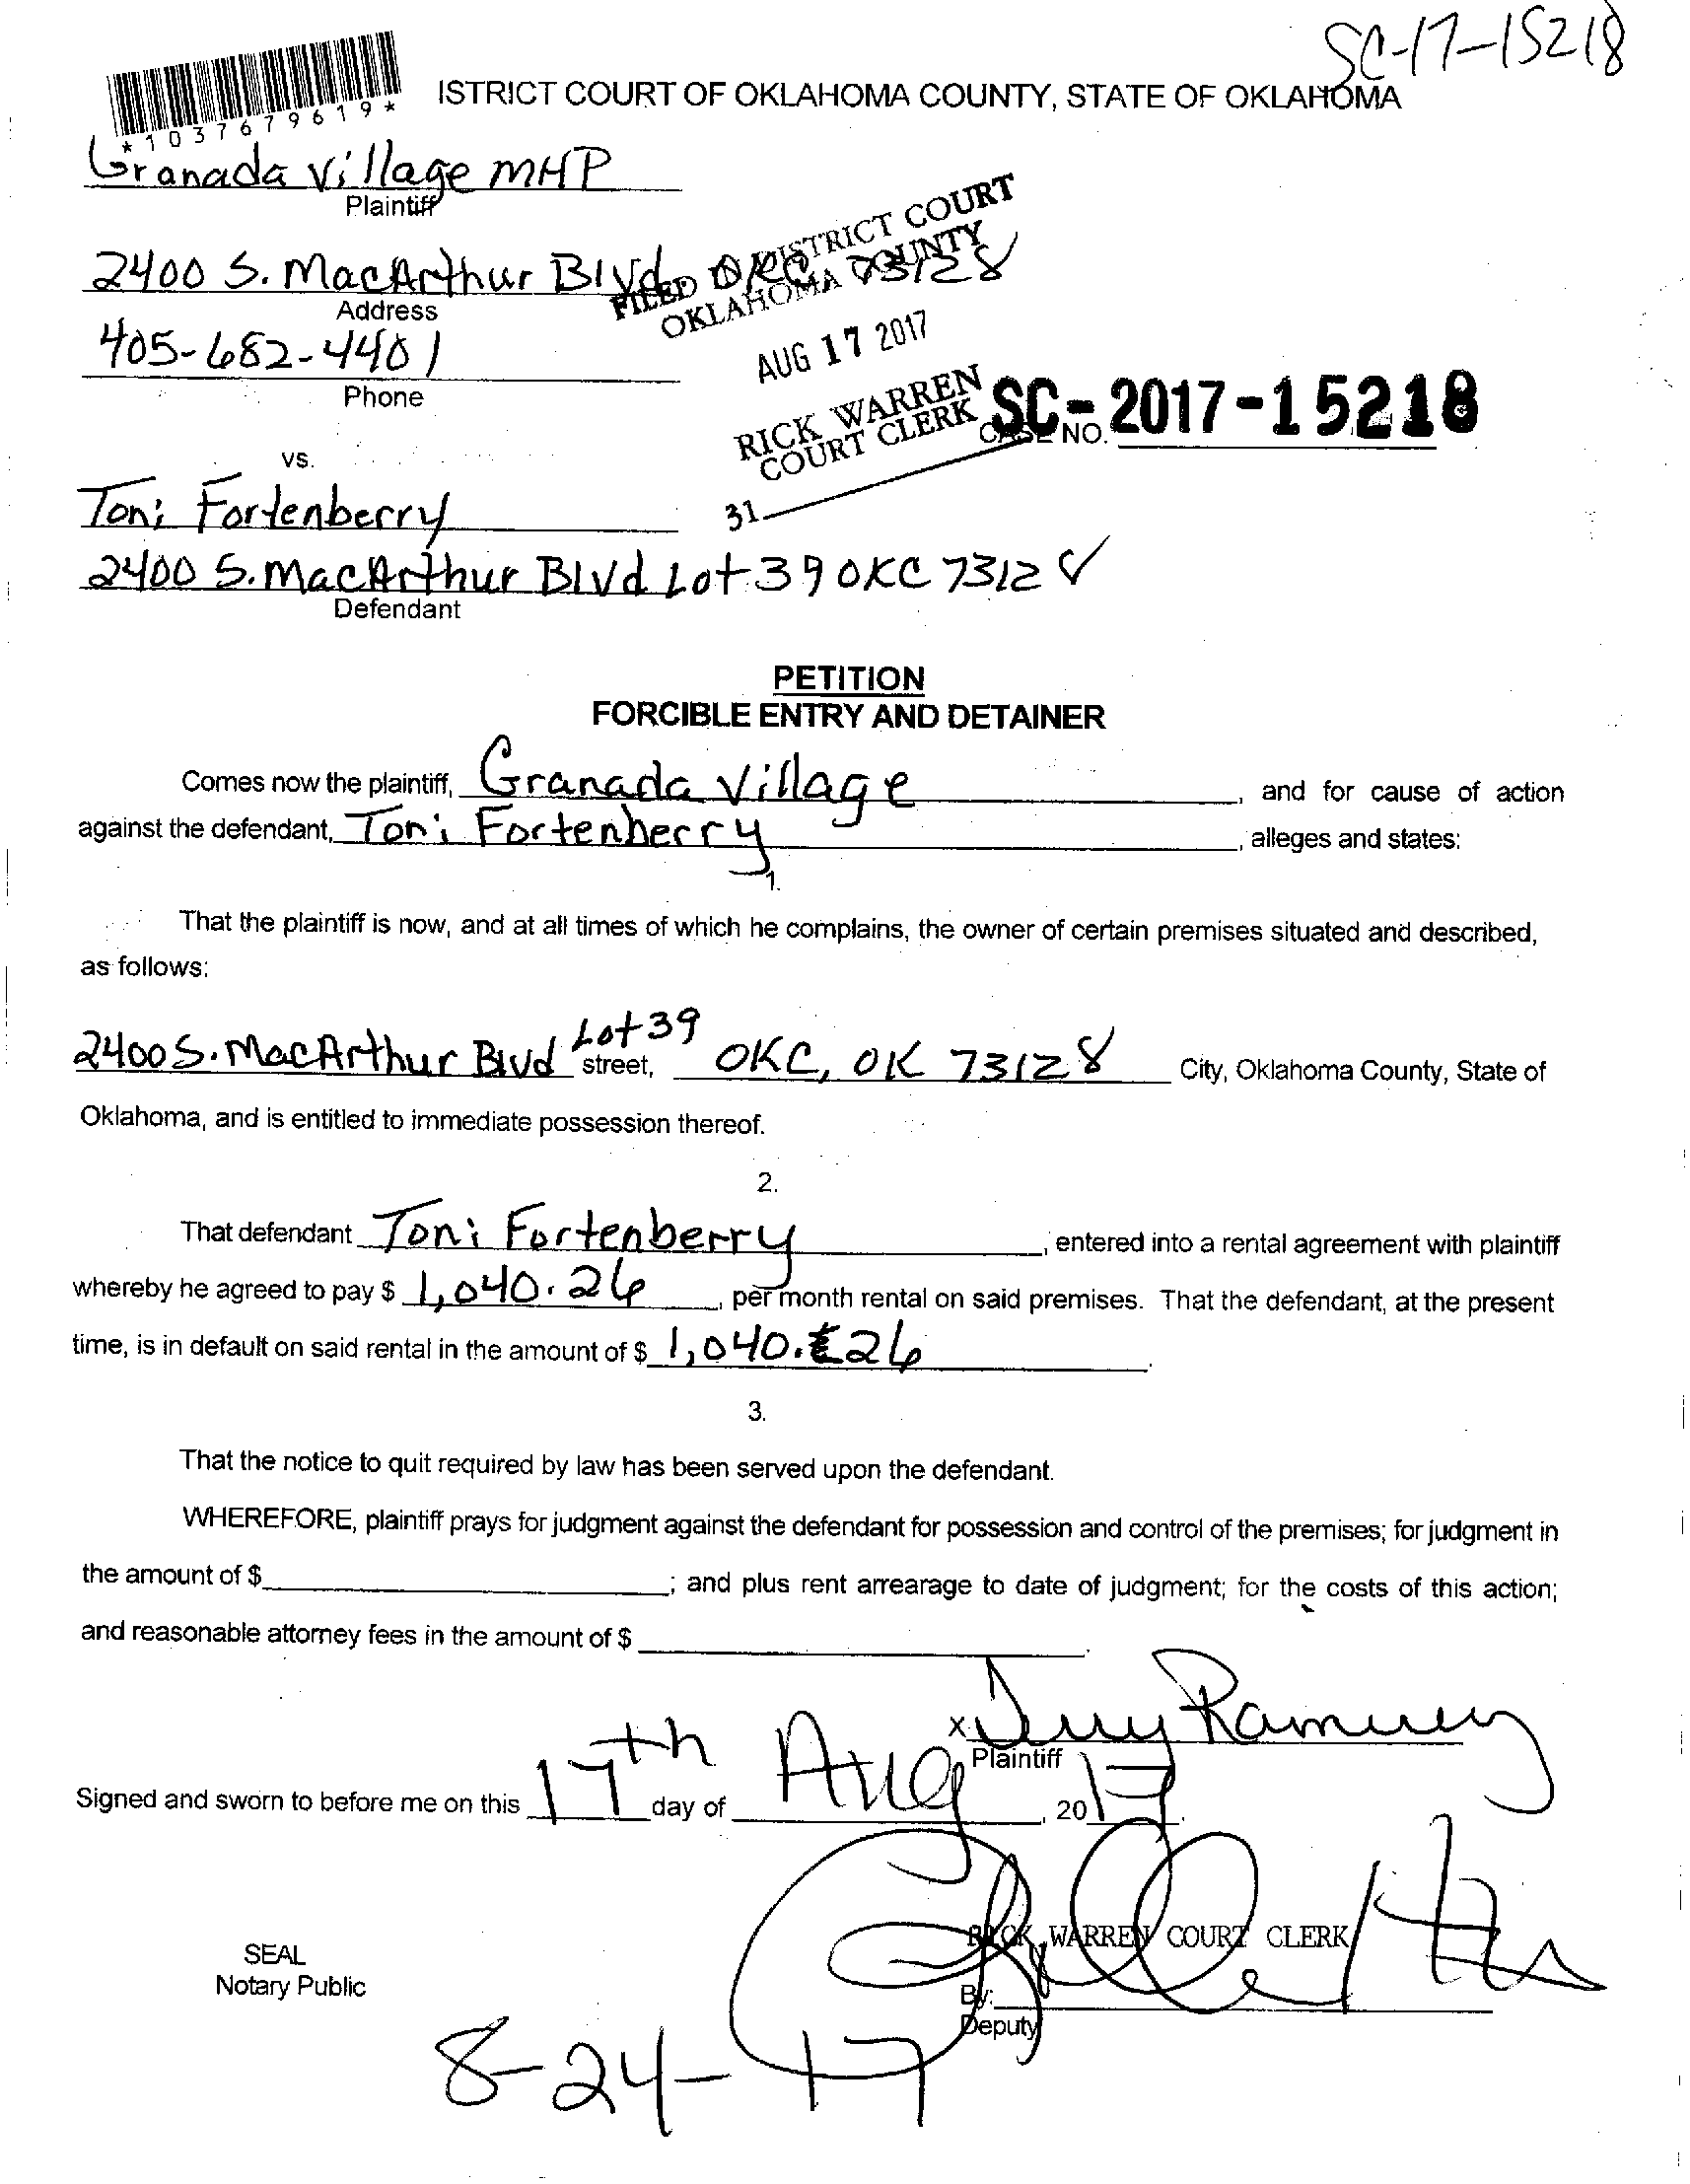 SC-17-15218
*1037679619*
ISTRICT COURT OF OKLAHOMA COUNTY, STATE OF OKLAHOMA
Granada Village MHP
Plaintiff
2400 S. MacArthur Blvd. OKC 73128
Address
FILED IN DISTRICT COURT
OKLAHOMA COUNTY
405-682-4401
Phone
AUG 17 2017
RICK WARREN
COURT CLERK
31
CASE NO. SC-2017-15218
vs.
Toni Fortenberry
2400 S. MacArthur Blvd Lot 39 OKC 73128
Defendant
PETITION
FORCIBLE ENTRY AND DETAINER
Comes now the plaintiff, Granada Village, and for cause of action
against the defendant, Toni Fortenberry, alleges and states:
1.
That the plaintiff is now, and at all times of which he complains, the owner of certain premises situated and described,
as follows:
2400 S. MacArthur Blvd Lot 39 street, OKC, OK 73128 City, Oklahoma County, State of
Oklahoma, and is entitled to immediate possession thereof.
2.
That defendant Toni Fortenberry, entered into a rental agreement with plaintiff
whereby he agreed to pay $ 1,040.26, per month rental on said premises. That the defendant, at the present
time, is in default on said rental in the amount of $ 1,040.26.
3.
That the notice to quit required by law has been served upon the defendant.
WHEREFORE, plaintiff prays for judgment against the defendant for possession and control of the premises; for judgment in
the amount of $ ; and plus rent arrearage to date of judgment; for the costs of this action;
and reasonable attorney fees in the amount of $ .
X
Plaintiff
Signed and sworn to before me on this 17th day of Aug, 2017.
RICK WARREN COURT CLERK
SEAL
Notary Public
By:
Deputy
8-24-17